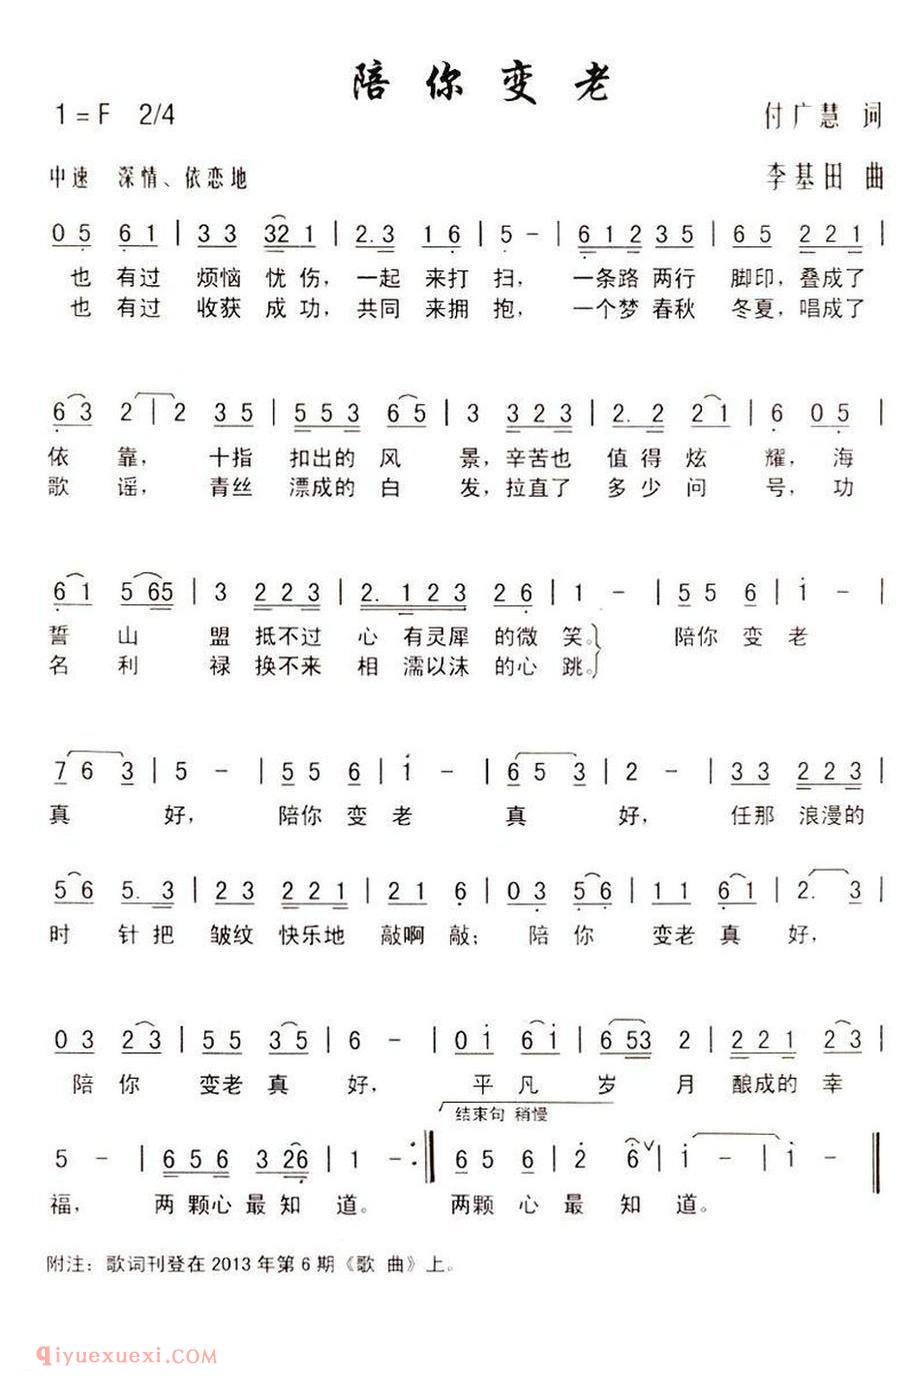 陪你变老
1=F 2/4 付广慧 词
中速 深情、依恋地 李基田 曲
0 5 6 1 | 3 3 32 1 | 2.3 1 6 | 5 - | 6 1 2 3 5 | 6 5 2 2 1 |
也 有过 烦恼 忧伤，一起 来打 扫，一条路 两行 脚印，叠成了
也 有过 收获 成功，共同 来拥 抱，一个梦 春秋 冬夏，唱成了
6 3 2 | 2 3 5 | 5 5 3 6 5 | 3 3 2 3 | 2. 2 2 1 | 6 0 5 |
依 靠，十指 扣出的 风 景，辛苦也 值得 炫 耀，海
歌 谣，青丝 漂成的 白 发，拉直了 多少 问 号，功
6 1 5 65 | 3 2 2 3 | 2. 1 2 3 2 6 | 1 - | 5 5 6 | i - |
誓 山 盟 抵不过 心 有灵犀 的微 笑。} 陪你 变 老
名 利 禄 换不来 相 濡以沫 的心 跳。
7 6 3 | 5 - | 5 5 6 | i - | 6 5 3 | 2 - | 3 3 2 2 3 |
真 好，陪你 变 老 真 好，任那 浪漫的
5 6 5. 3 | 2 3 2 2 1 | 2 1 6 | 0 3 5 6 | 1 1 6 1 | 2. 3 |
时 针 把 皱纹 快乐地 敲啊 敲；陪 你 变老 真 好，
0 3 2 3 | 5 5 3 5 | 6 - | 0 i 6 i | 6 53 2 | 2 2 1 2 3 |
陪 你 变老 真 好，平 凡 岁 月 酿成的 幸
结束句 稍慢
5 - | 6 5 6 3 26 | 1 - :‖ 6 5 6 | 2 6 ∨ | i - | i - ‖
福，两 颗心 最 知 道。两颗 心 最 知 道。
附注：歌词刊登在 2013 年第 6 期《歌 曲》上。
qiyuexuexi.com@七月学习